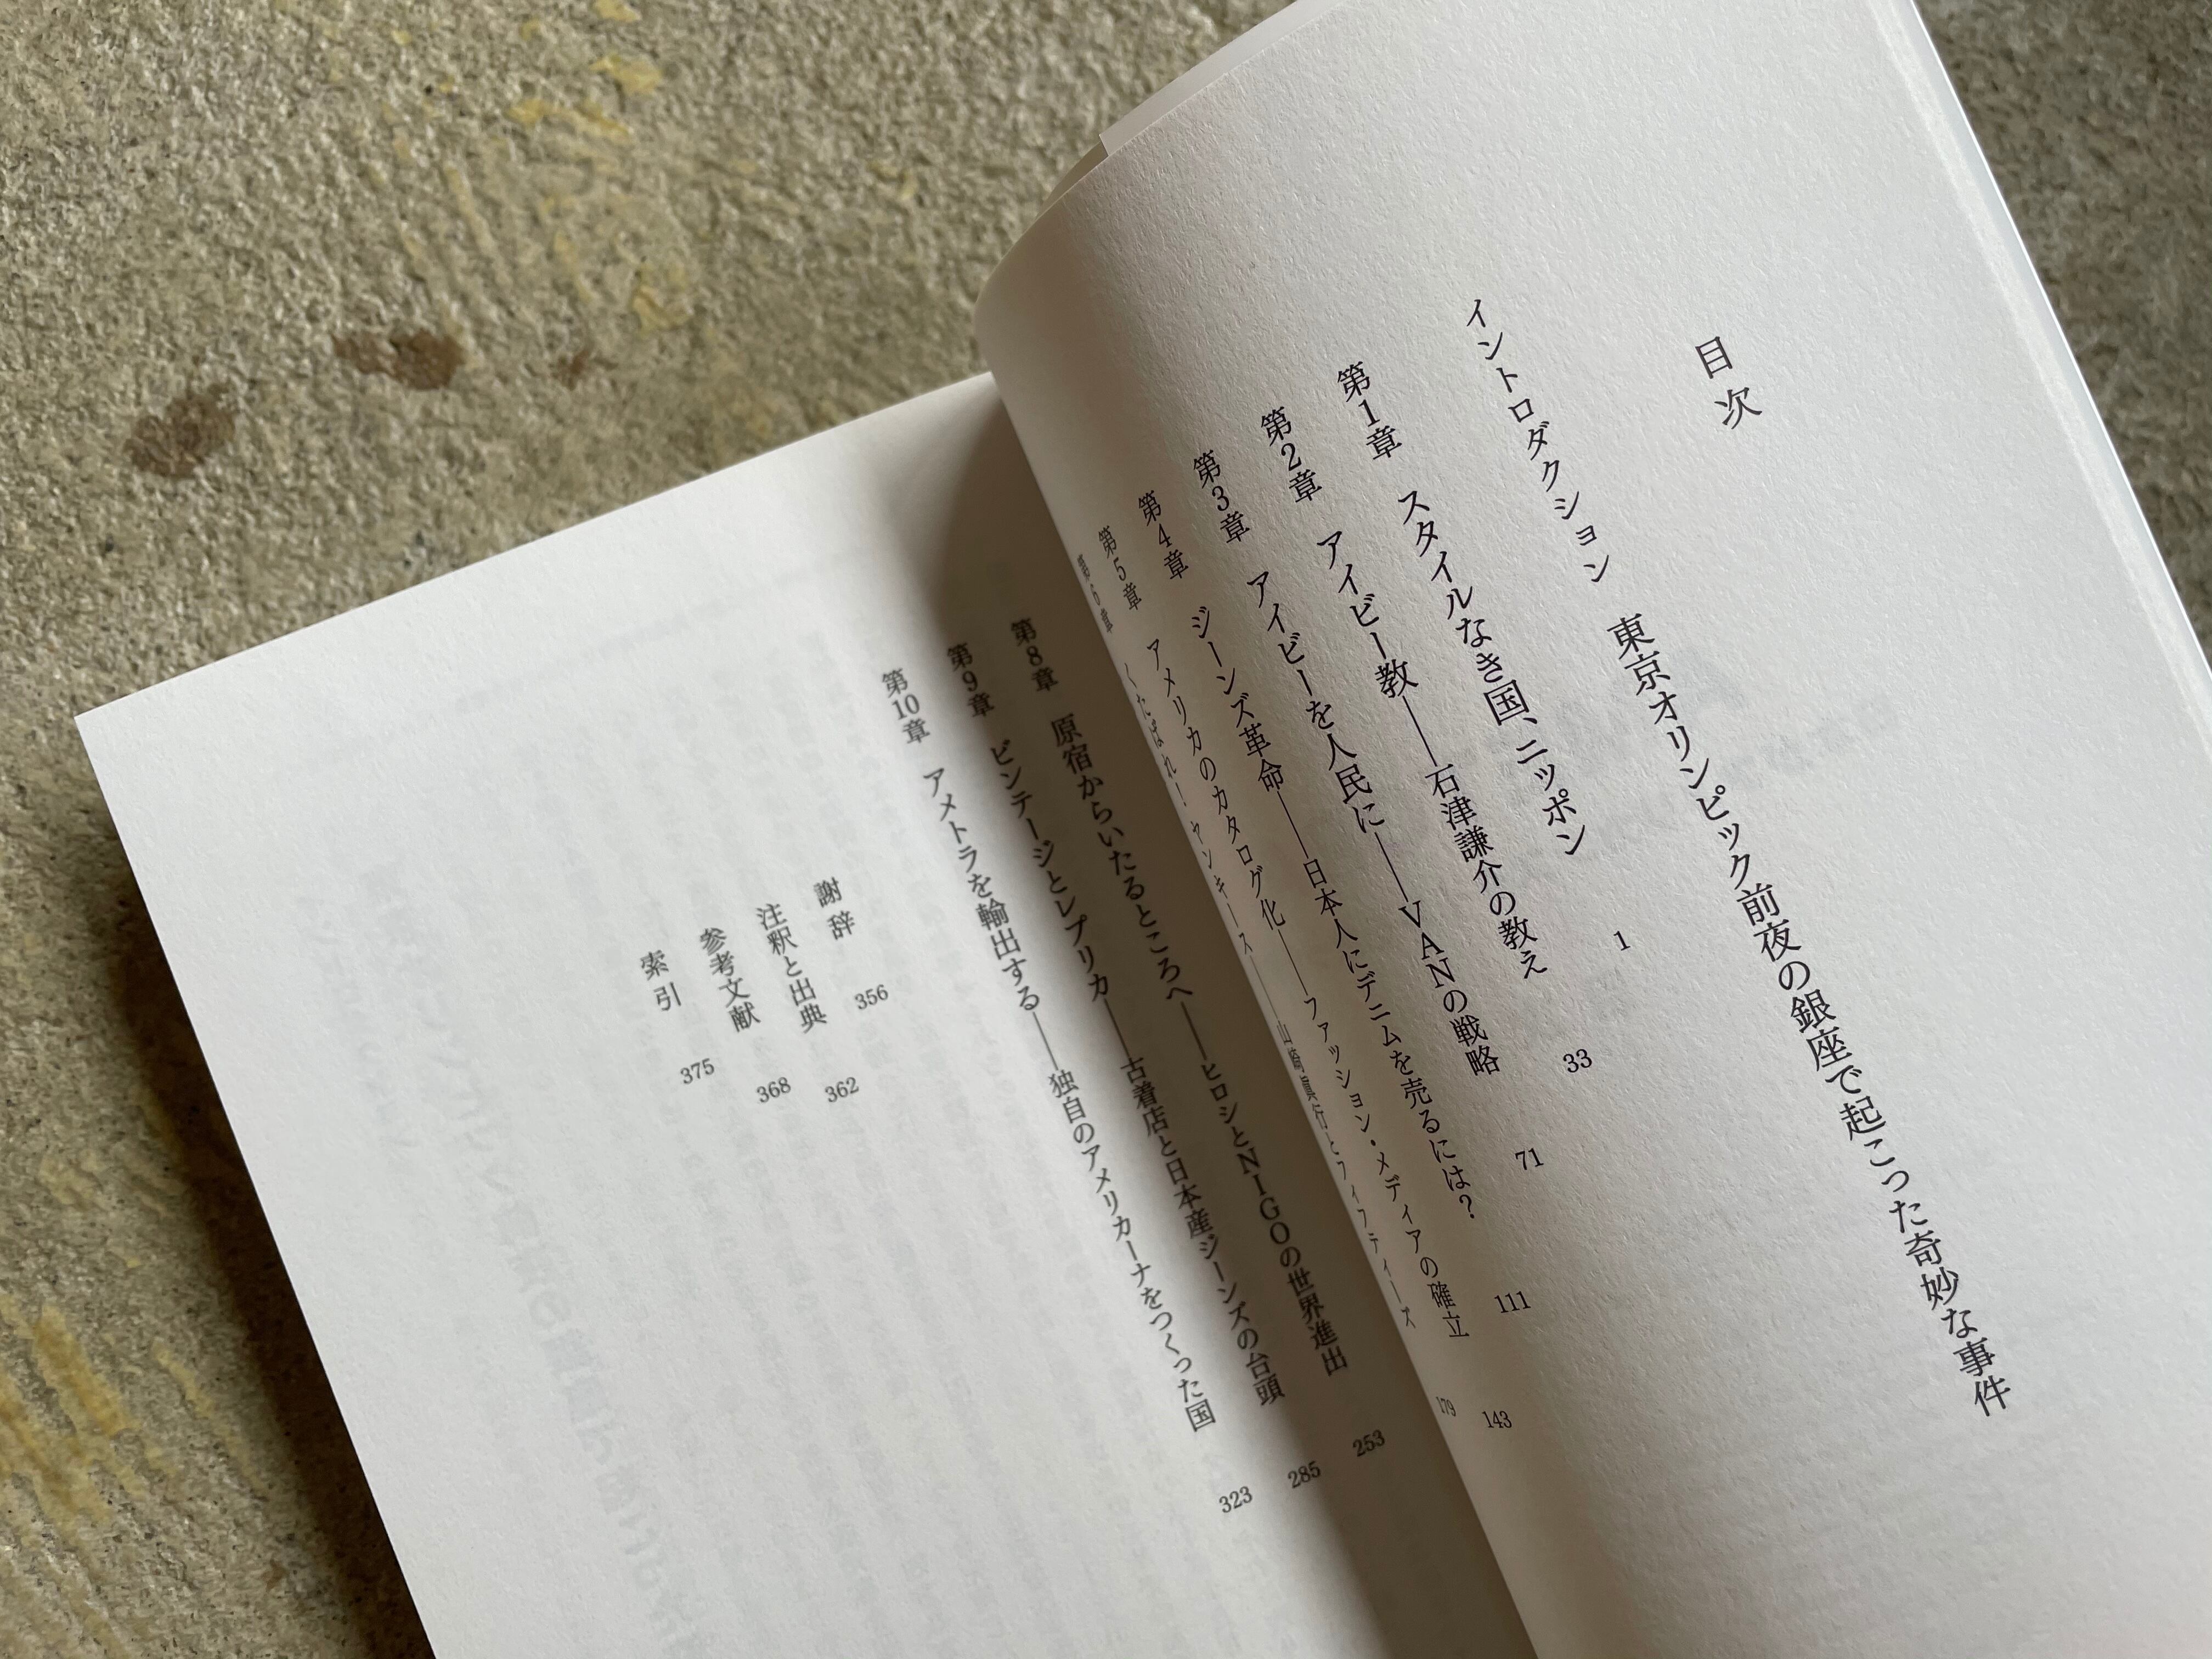 目次
イントロダクション 東京オリンピック前夜の銀座で起こった奇妙な事件
第1章 スタイルなき国、ニッポン 1
第2章 アイビー教――石津謙介の教え 33
第3章 アイビーを人民に――VANの戦略 71
第4章 ジーンズ革命――日本人にデニムを売るには? 111
第5章 アメリカのカタログ化――ファッション・メディアの確立 143
第6章 くたばれ！ヤンキース――山崎眞行とフィフティーズ 179
第8章 原宿からいたるところへ――ヒロシとNIGOの世界進出 253
第9章 ビンテージとレプリカ――古着店と日本産ジーンズの台頭 285
第10章 アメトラを輸出する――独自のアメリカーナをつくった国 323
謝辞 356
注釈と出典 362
参考文献 368
索引 375